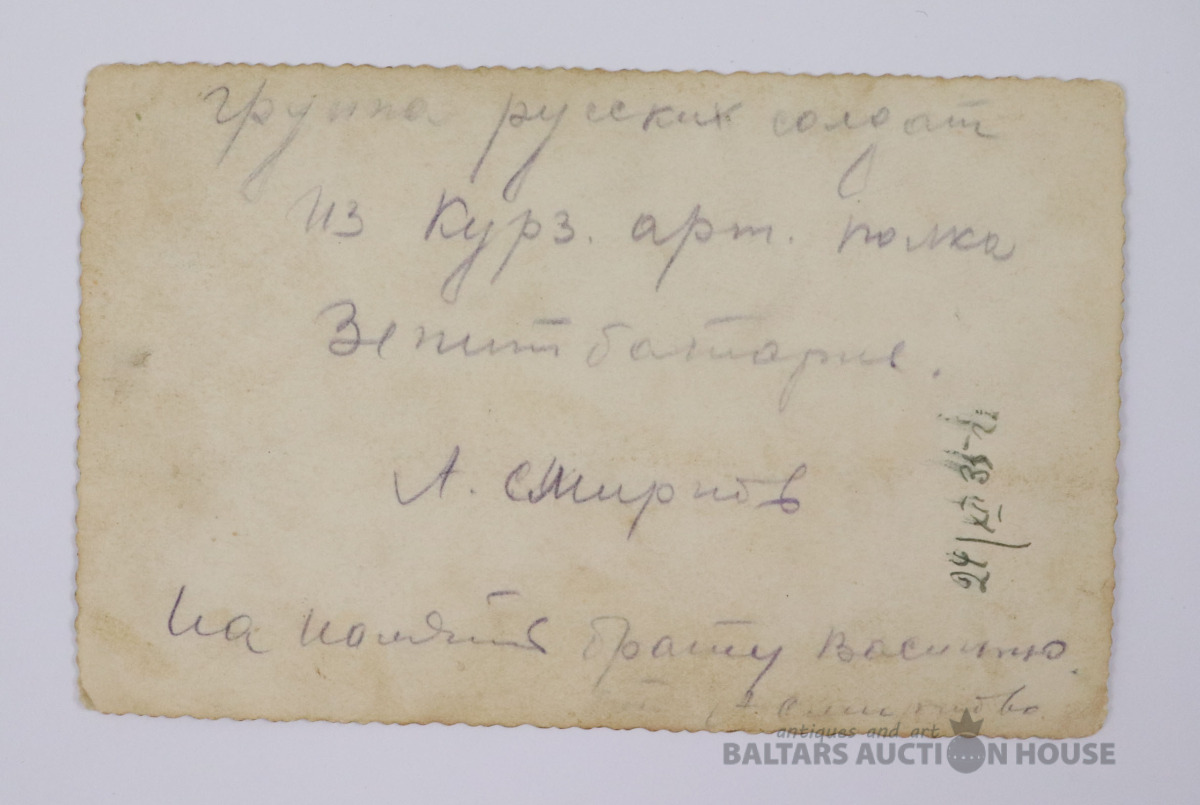 Группа русских солдат
из Курз. арт. полка
Зенит батарие.
А. Смирнов
на память брату Василию.
А. Смирнова
24/XII 38
antiques and art
BALTARS AUCTION HOUSE